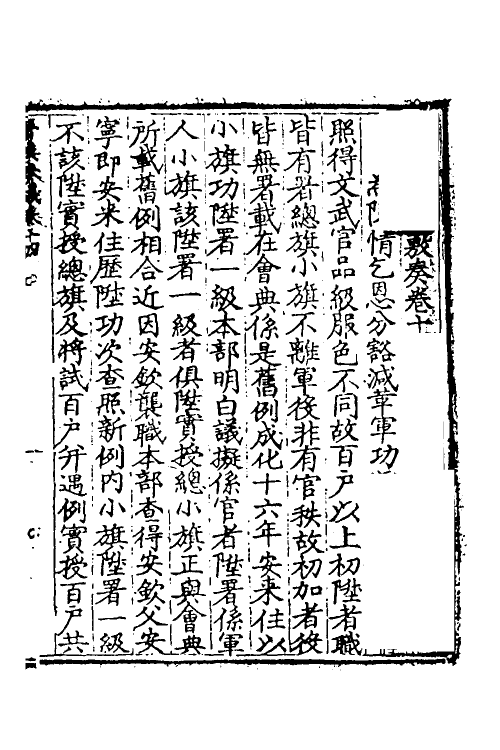 敷奏卷十
情乞恩分豁減革軍功
照得文武官品級服色不同故百戶以上初陞者職
皆有署總旗小旗不離軍役非有官秩故初加者役
皆無署載在會典係是舊例成化十六年安來住以
小旗功陞署一級本部明白議擬係官者陞署係軍
人小旗該陞署一級者俱陞實授總小旗正與會典
所載舊例相合近因安欽襲職本部查得安欽父安
寧即安來住歷陞功次查照新例內小旗陞署一級
不該陞實授總旗及將試百戶幷遇例實授百戶共